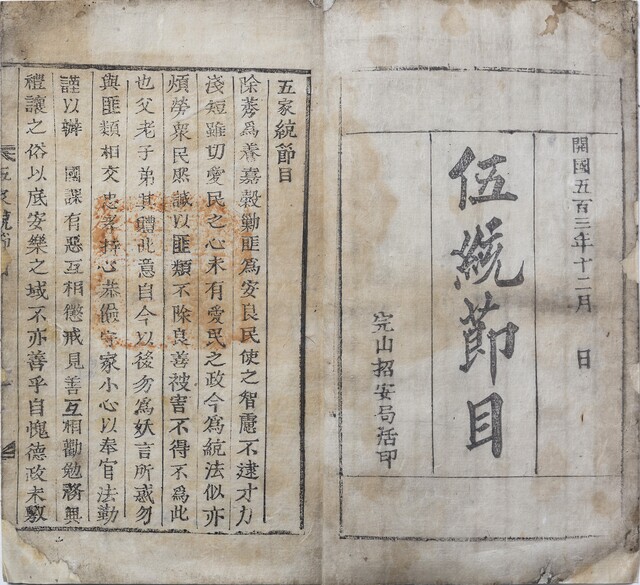 開國五百三年十二月　日
伍統節目
完山招安局活印
五家統節目
除莠爲養嘉穀勦匪爲安良民使之智慮不逮才力
淺短雖切愛民之心未有愛民之政今爲統法似亦
煩勞衆民然誠以匪類不除良善被害不得不爲此
也父老子弟其體此意自今以後勿爲妖言所惑勿
與匪類相交忠孝持心恭儉守家小心以奉官法勤
謹以辦　國課有惡互相懲戒見善互相勸勉務興
禮讓之俗以底安樂之域不亦善乎自愧德政未敷
五家統節目